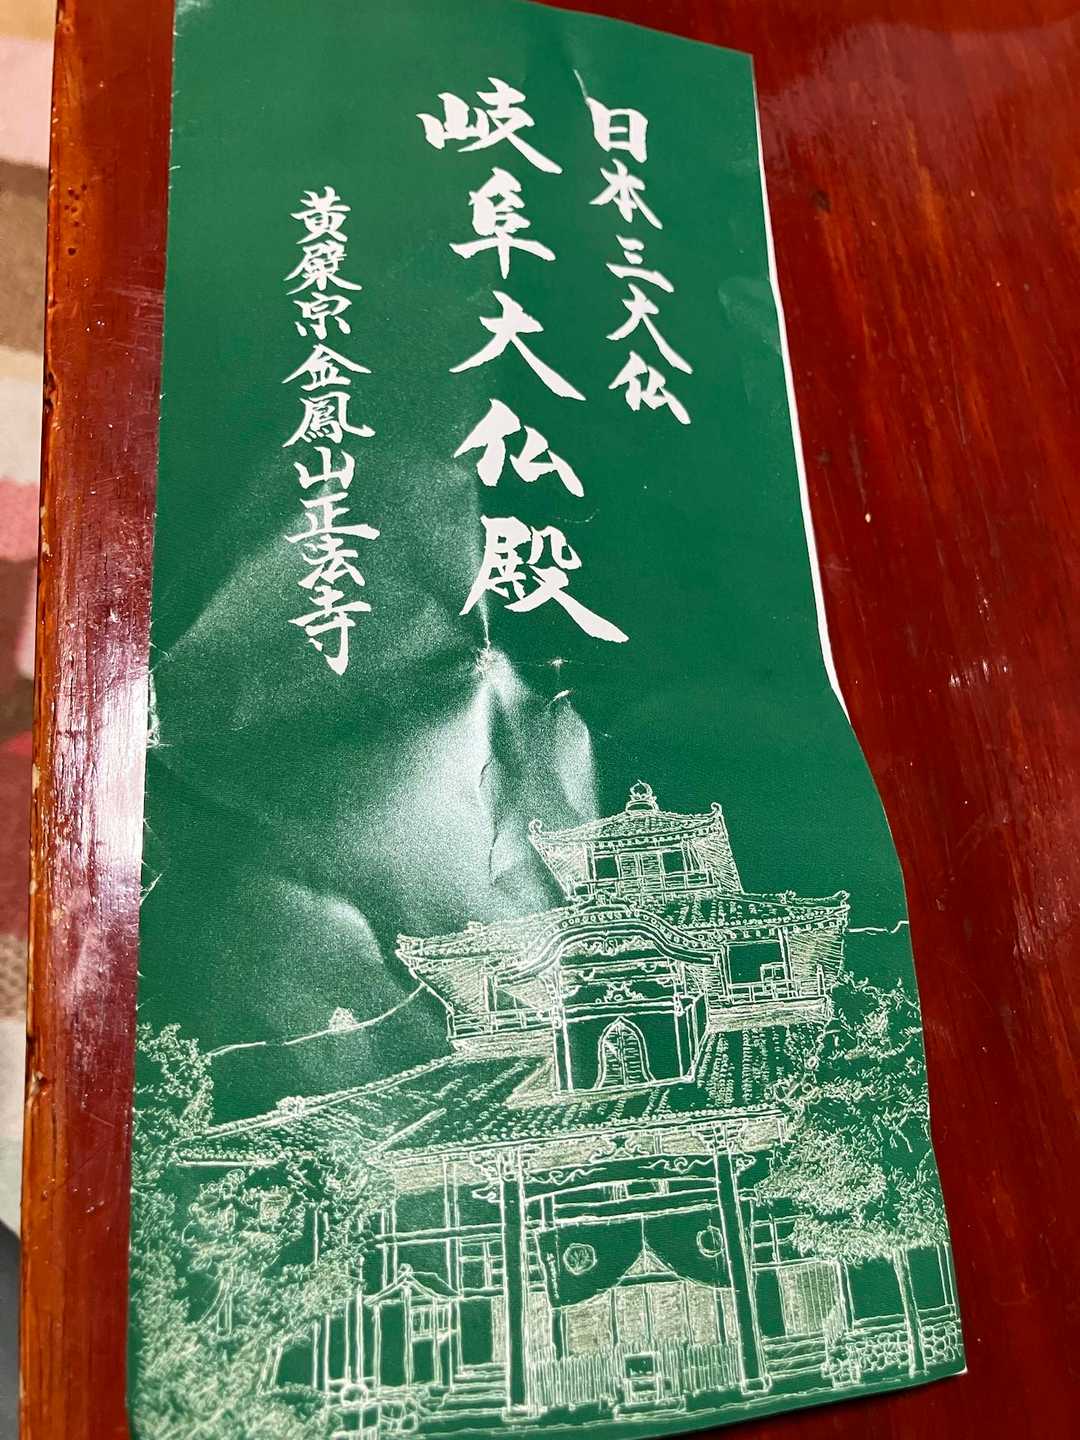 日本三大仏
岐阜大仏殿
黄檗宗金鳳山正法寺